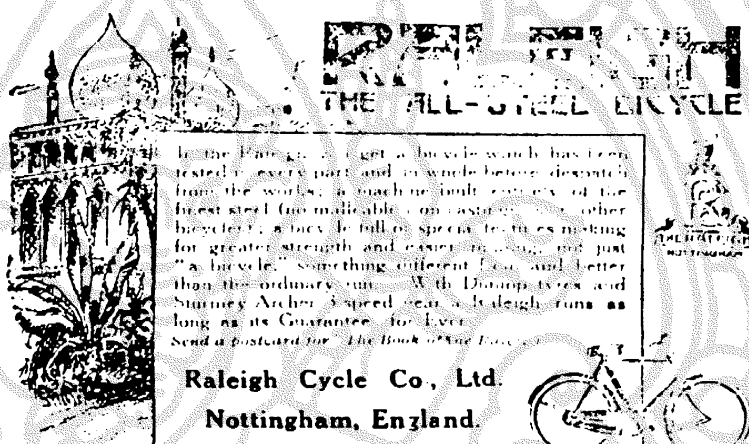 RALEIGH
THE ALL-STEEL BICYCLE
In the Raleigh you get a bicycle which has been
tested in every part and in whole before despatch
from the works; a machine built entirely of the
finest steel (no malleable iron castings as in other
bicycles); a bicycle full of special features making
for greater strength and easier running; not just
"a bicycle," something different from and better
than the ordinary run. With Dunlop tyres and
Sturmey Archer 3-speed gear a Raleigh runs as
long as its Guarantee—for Ever.
Send a postcard for "The Book of the Raleigh"
THE RALEIGH
NOTTINGHAM
Raleigh Cycle Co., Ltd.
Nottingham, England.